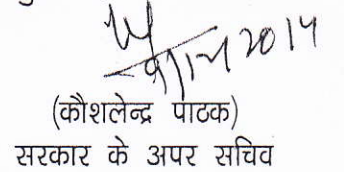 2014
(कौशलेन्द्र पाठक)
सरकार के अपर सचिव